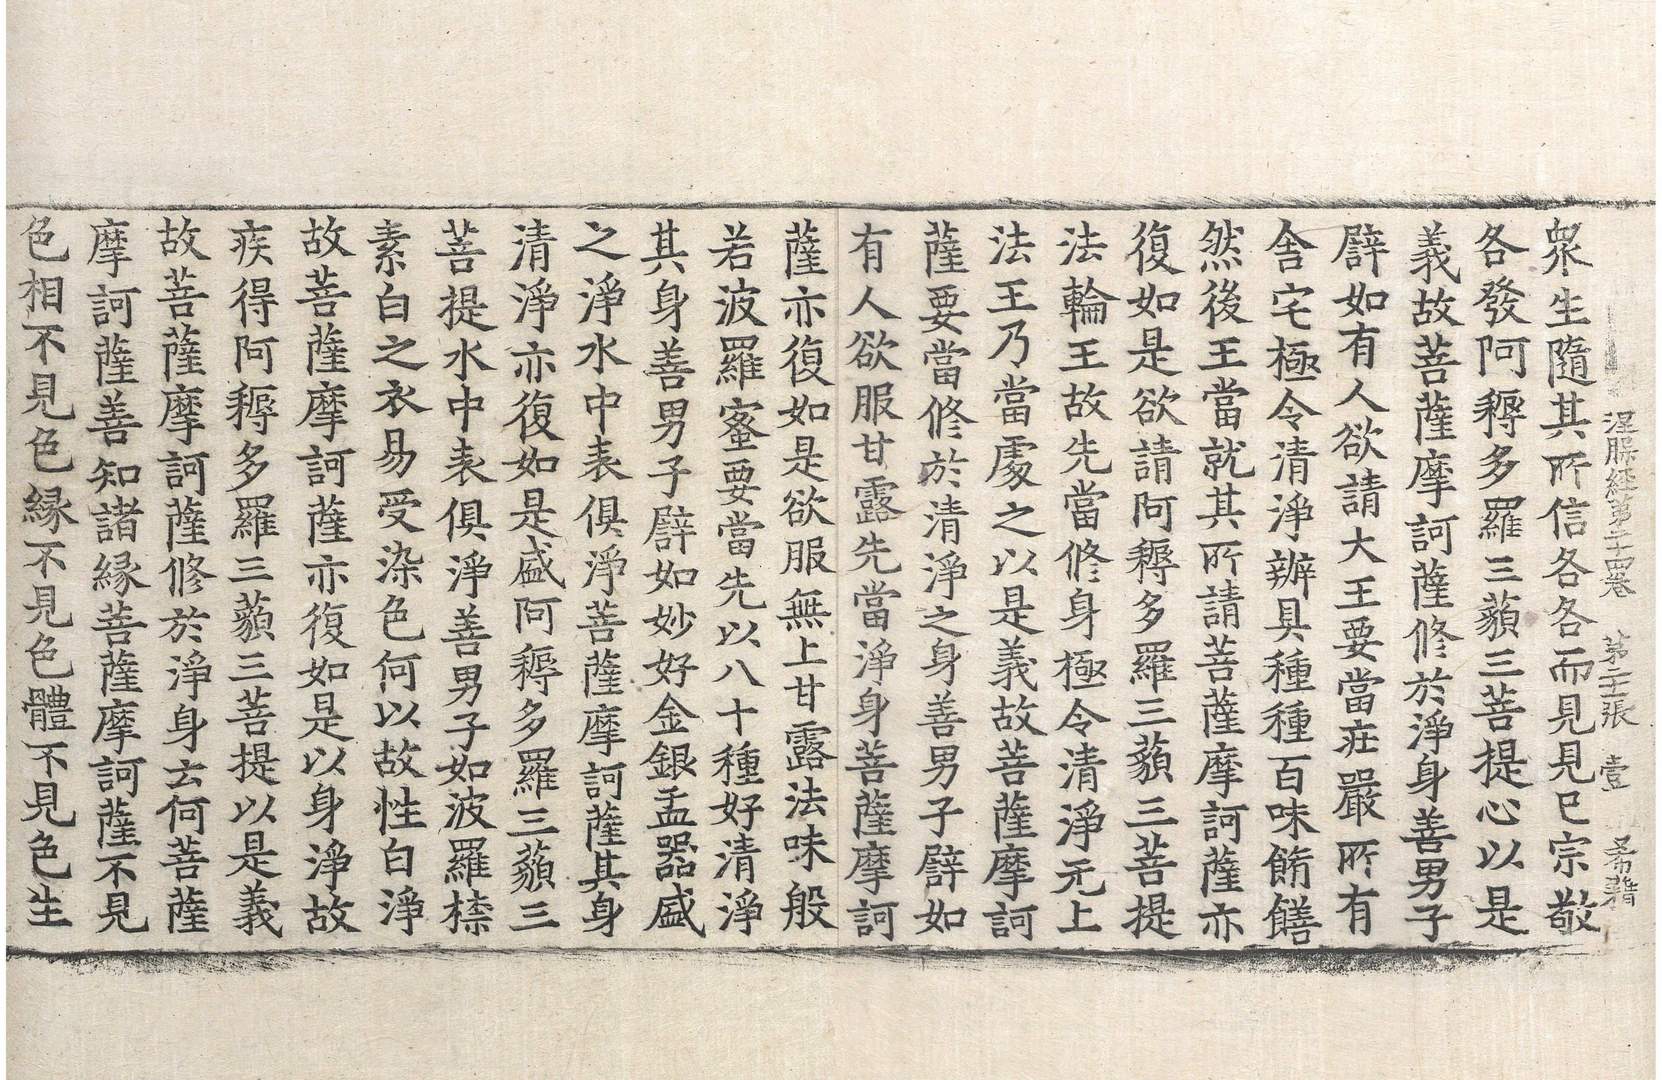 涅槃經第二十四卷　第二十張　壹　名藉
衆生隨其所信各各而見見已宗敬
各發阿耨多羅三藐三菩提心以是
義故菩薩摩訶薩修於淨身善男子
辟如有人欲請大王要當莊嚴所有
舍宅極令清淨辦具種種百味餚饍
然後王當就其所請菩薩摩訶薩亦
復如是欲請阿耨多羅三藐三菩提
法輪王故先當修身極令清淨无上
法王乃當處之以是義故菩薩摩訶
薩要當修於清淨之身善男子辟如
有人欲服甘露先當淨身菩薩摩訶
薩亦復如是欲服無上甘露法味般
若波羅蜜要當先以八十種好清淨
其身善男子辟如妙好金銀盂器盛
之淨水中表俱淨菩薩摩訶薩其身
清淨亦復如是盛阿耨多羅三藐三
菩提水中表俱淨善男子如波羅㮈
素白之衣易受染色何以故性白淨
故菩薩摩訶薩亦復如是以身淨故
疾得阿耨多羅三藐三菩提以是義
故菩薩摩訶薩修於淨身云何菩薩
摩訶薩善知諸緣菩薩摩訶薩不見
色相不見色緣不見色體不見色生